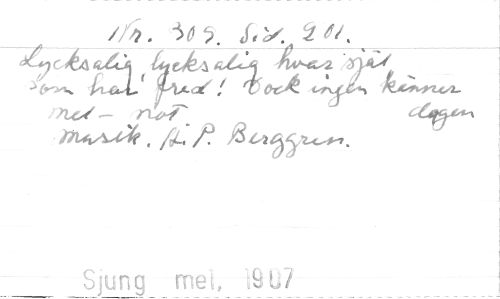 Nr. 309. Sid. 201.
Lycksalig lycksalig hvar själ
som har fred! Dock ingen känner
mel- not dagen
Musik. A. P. Berggren.
Sjung mel, 1907